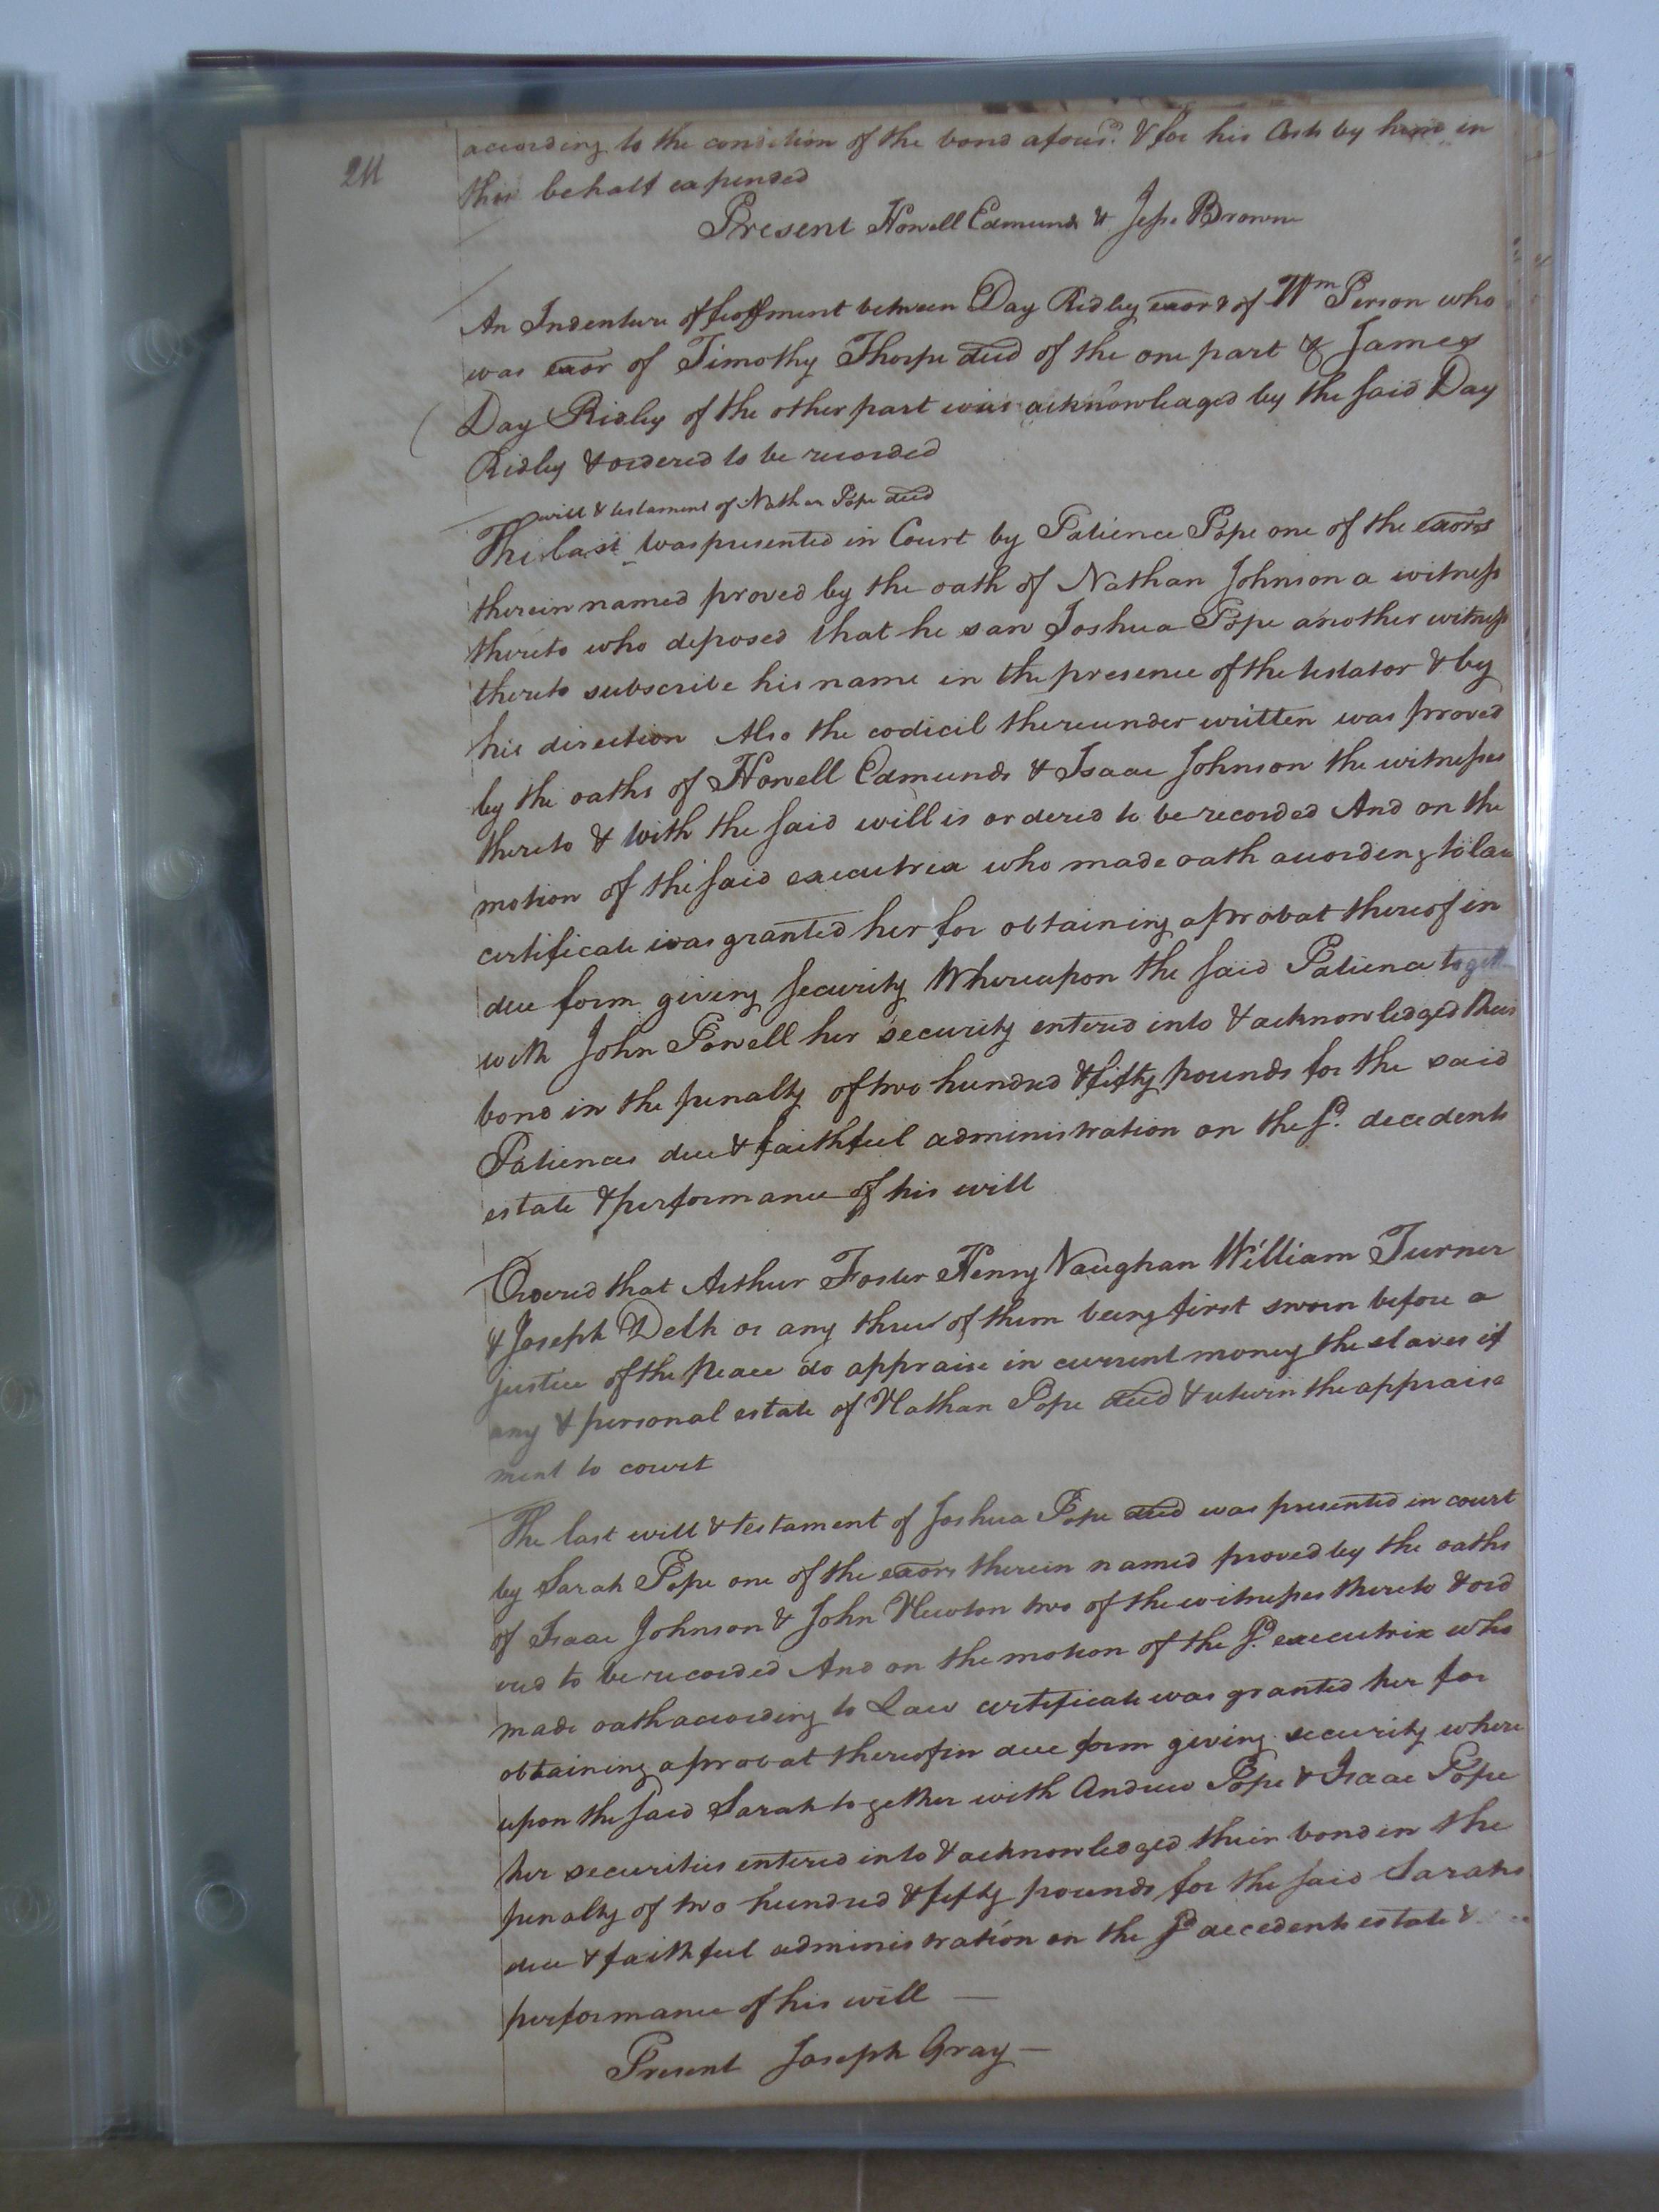 211
according to the condition of the bond afores.d & for his Costs by him in
this behalf expended
Present Howell Edmunds & Jesse Brown
An Indenture of feoffment between Day Ridley exor & of Wm Person who
was exor of Timothy Thorpe decd of the one part & James
Day Ridley of the other part was acknowledged by the said Day
Ridley & ordered to be recorded
will & testament of Nathan Pope decd
The last was presented in Court by Patience Pope one of the exors
therein named proved by the oath of Nathan Johnson a witness
thereto who deposed that he saw Joshua Pope another witness
thereto subscribe his name in the presence of the testator & by
his direction Also the codicil thereunder written was proved
by the oaths of Howell Edmunds & Isaac Johnson the witnesses
thereto & with the said will is ordered to be recorded And on the
motion of the said executrix who made oath according to law
certificate was granted her for obtaining a probat thereof in
due form giving security Whereupon the said Patience togeth
with John Powell her security entered into & acknowledged their
bond in the penalty of two hundred & fifty pounds for the said
Patiences due & faithful administration on the sd. decedents
estate & performance of his will
Ordered that Arthur Foster Henry Vaughan William Turner
& Joseph Delk or any three of them being first sworn before a
justice of the peace do appraise in current money the slaves if
any & personal estate of Nathan Pope decd & return the appraise
ment to court
The last will & testament of Joshua Pope decd was presented in court
by Sarah Pope one of the exors therein named proved by the oaths
of Isaac Johnson & John Newton two of the witnesses thereto & ord
ered to be recorded And on the motion of the sd. executrix who
made oath according to Law certificate was granted her for
obtaining a probat thereof in due form giving security where
upon the said Sarah together with Andrew Pope & Isaac Pope
her securities entered into & acknowledged their bond in the
penalty of two hundred & fifty pounds for the said Sarahs
due & faithful administration on the sd decedents estate &
performance of his will —
Present Joseph Gray —